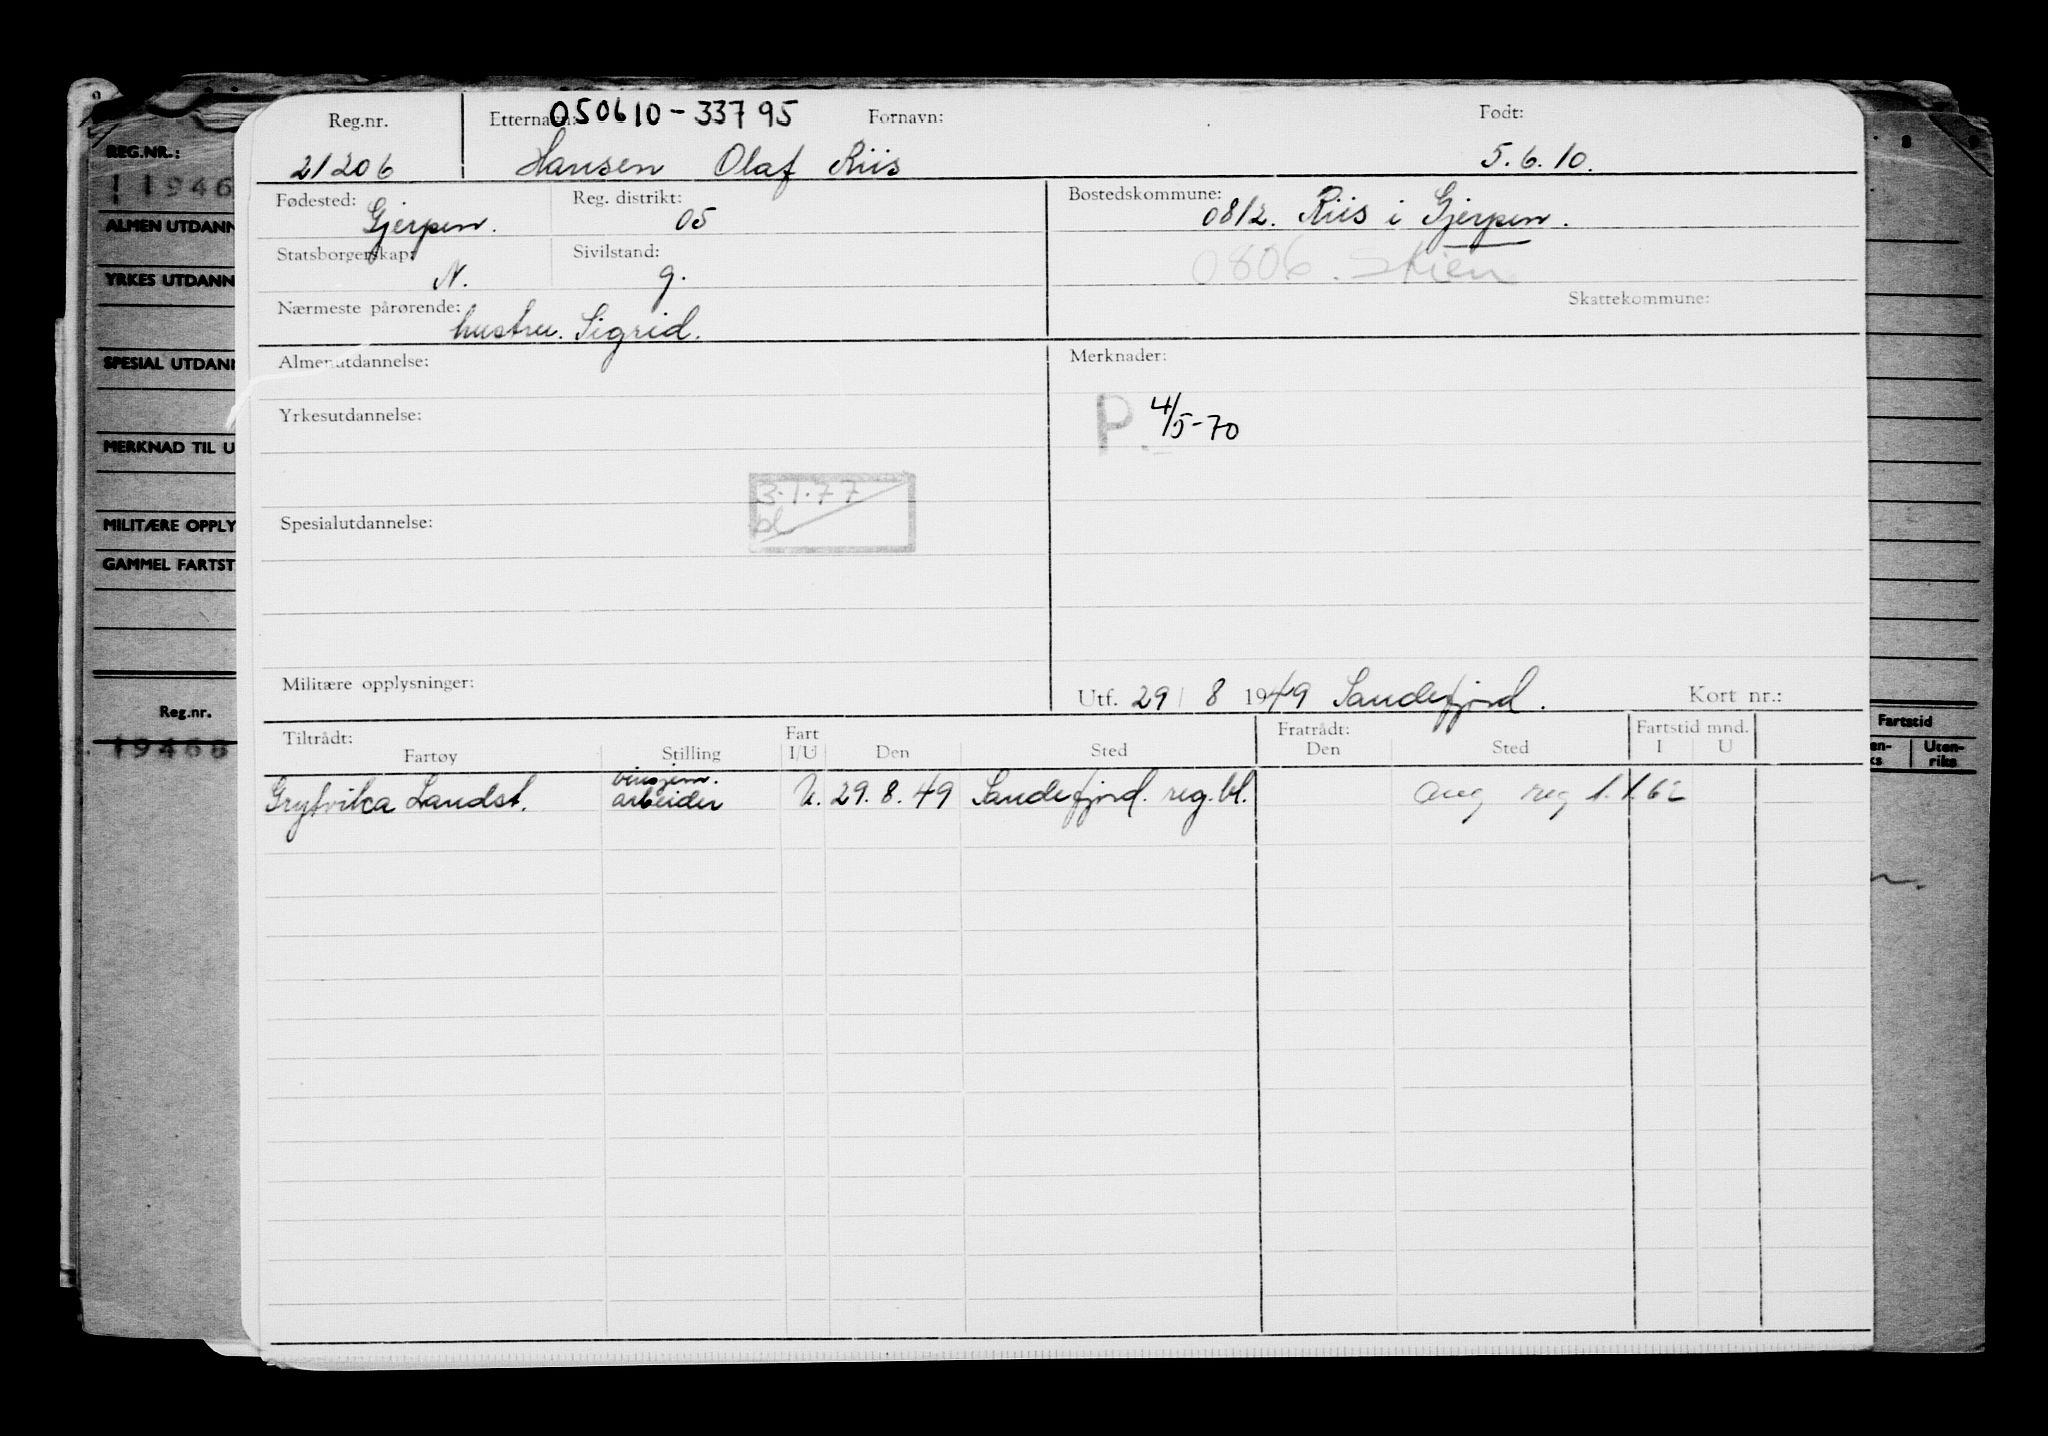 Reg.nr. Etternavn: 050610-33795 Fornavn: Født:
21206 Hansen Olaf Riis 5.6.10.
Fødested: Gjerpen. Reg. distrikt: 05 Bostedskommune: 0812. Riis i Gjerpen.
Statsborgerskap: N. Sivilstand: g. 0806. Skien
Skattekommune:
Nærmeste pårørende: hustru. Sigrid.
Almenutdannelse: Merknader:
Yrkesutdannelse: P. 4/5-70
3.1.77
bl
Spesialutdannelse:
Militære opplysninger: Utf. 29 / 8 1949 Sandefjord. Kort nr.:
Tiltrådt: Fratrådt: Fartstid mnd.
Fartøy Stilling Fart I/U Den Sted Den Sted I U
Grytvika Landst. arbeider U. 29.8.49 Sandefjord. reg.bl. reg 1.1.62
REG.NR.:
19468
ALMEN UTDANN
YRKES UTDANN
SPESIAL UTDANN
MERKNAD TIL U
MILITÆRE OPPLY
GAMMEL FARTST
Reg.nr.
19468
Fartstid
en-ks Uten-riks